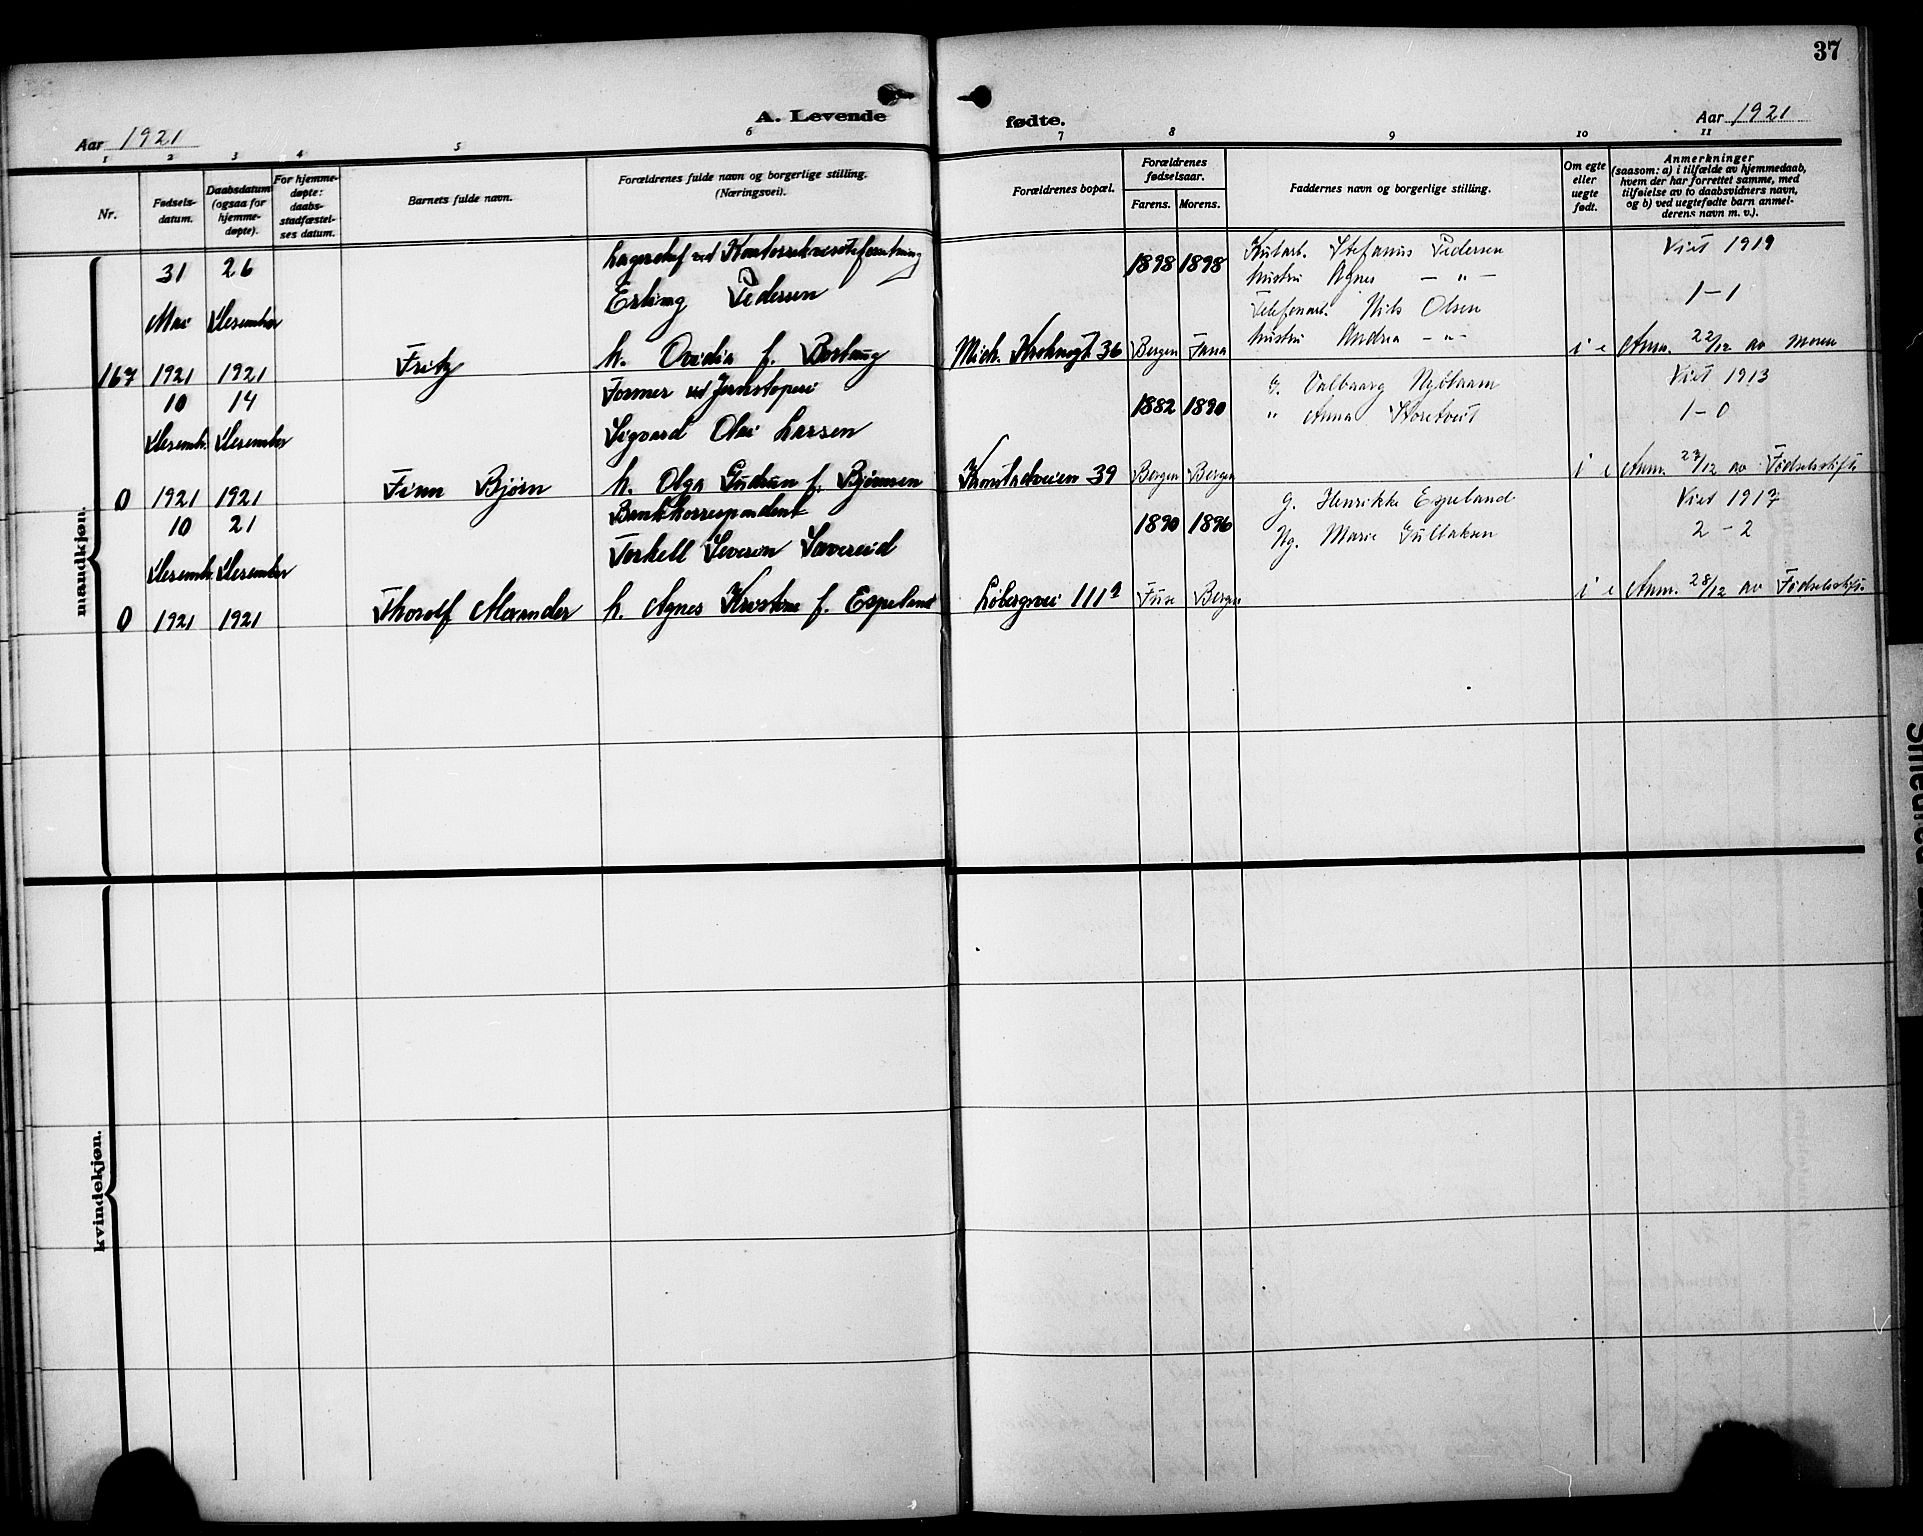 37
A. Levende fødte.
Aar 1921
Aar 1921
1 2 3 4 5 6 7 8 9 10 11
Nr.
Fødsels-
datum.
Daabsdatum
(ogsaa for
hjemme-
døpte).
For hjemme-
døpte:
daabs-
stadfæstel-
ses datum.
Barnets fulde navn.
Forældrenes fulde navn og borgerlige stilling.
(Næringsvei).
Forældrenes bopæl.
Forældrenes
fødselsaar.
Farens. Morens.
Faddernes navn og borgerlige stilling.
Om egte
eller
uegte
født.
Anmerkninger
(saasom: a) i tilfælde av hjemmedaab,
hvem der har forrettet samme, med
tilføielse av to daabsvidners navn,
og b) ved uegtefødte barn anmel-
derens navn m. v.).
mandkjøn.
167
31
Mai
1921
26
Desember
1921
Fritz
Lagerchef ved
Erling Pedersen
h. Ovidia f. Bortaug
Mich. Krohnsgt. 36
1898 1898
Bergen Fana
Stefanus Pedersen
hustru Agnes — „ —
Telefonarb. Nils Olsen
hustru Andrea — „ —
i e
Viet 1919
1 – 1
Anm. 22/12 av Moren
0
10
Desemb.
1921
14
Desember
1921
Finn Bjørn
Former ved Jernstøperi
Sigvard Olai Larsen
h. Olga Gudrun f. Bjørnsen
39
1882 1890
Bergen Bergen
g. Valborg
„ Anna Storetveit
i e
Viet 1913
1 – 0
Anm. 27/12 av Fødselsstift.
0
10
Desemb.
1921
21
Desember
1921
Thorolf Alexander
Bankkorrespondent
Torkell Severin Sævereid
h. Agnes Kristine f. Espeland
111
1890 1896
Fuse Bergen
g. Henrikke Espeland
Ug. Marie Gulbaksen
i e
Viet 1917
2 – 2
Anm. 28/12 av Fødselsstift.
kvindekjøn.